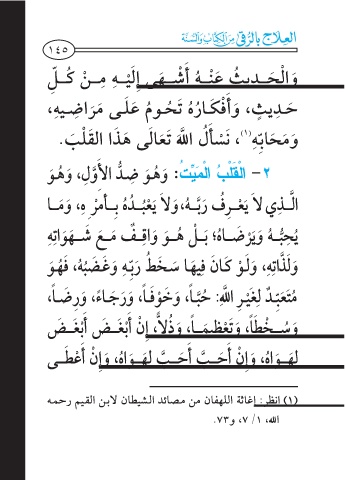 العِلَاج بِالرُّقَى مِنَ الكِتَابِ وَالسُّنَّة
١٤٥
وَالْحَدِيثُ عَنْهُ أَشْهَى إِلَيْهِ مِنْ كُلِّ
حَدِيثٍ، وَأَفْكَارُهُ تَحُومُ عَلَى مَرَاضِيهِ،
وَمَحَابِّهِ(١)، نَسْأَلُ اللَّهَ تَعَالَى هَذَا القَلْبَ.
٢- الْقَلْبُ الْمَيِّتُ: وَهُوَ ضِدُّ الأَوَّلِ، وَهُوَ
الَّذِي لاَ يَعْرِفُ رَبَّهُ، وَلاَ يَعْبُدُهُ بِأَمْرِهِ، وَمَا
يُحِبُّهُ وَيَرْضَاهُ؛ بَلْ هُوَ وَاقِفٌ مَعَ شَهَوَاتِهِ
وَلَذَّاتِهِ، وَلَوْ كَانَ فِيهَا سَخَطُ رَبِّهِ وَغَضَبُهُ، فَهُوَ
مُتَعَبِّدٌ لِغَيْرِ اللَّهِ: حُبًّا، وَخَوْفاً، وَرَجَاءً، وَرِضاً،
وَسُخْطاً، وَتَعْظِيماً، وَذُلاًّ، إِنْ أَبْغَضَ أَبْغَضَ
لِهَوَاهُ، وَإِنْ أَحَبَّ أَحَبَّ لِهَوَاهُ، وَإِنْ أَعْطَى
(١) انظر: إغاثة اللهفان من مصائد الشيطان لابن القيم رحمه
الله، ١/ ٧، و٧٣.